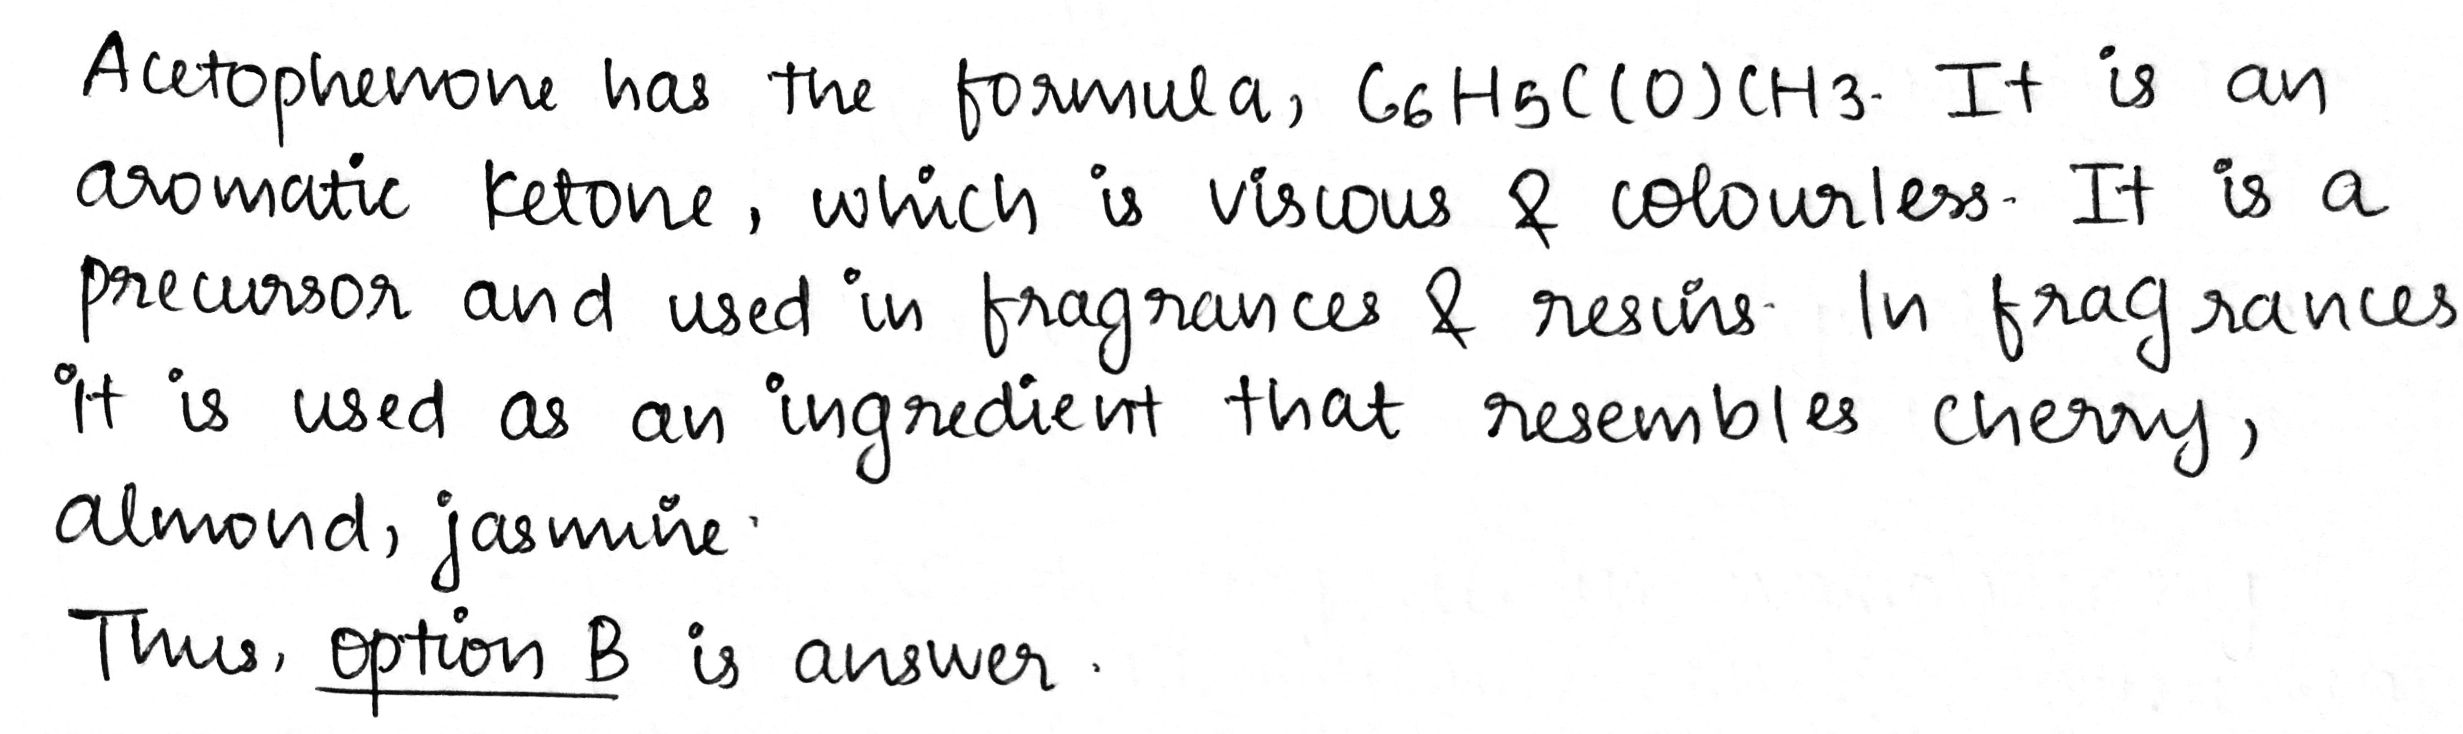 Acetophenone has the formula, C6H5C(O)CH3. It is an
aromatic ketone, which is viscous & colourless. It is a
precursor and used in fragrances & resins. In fragrances
it is used as an ingredient that resembles cherry,
almond, jasmine.
Thus, option B is answer.